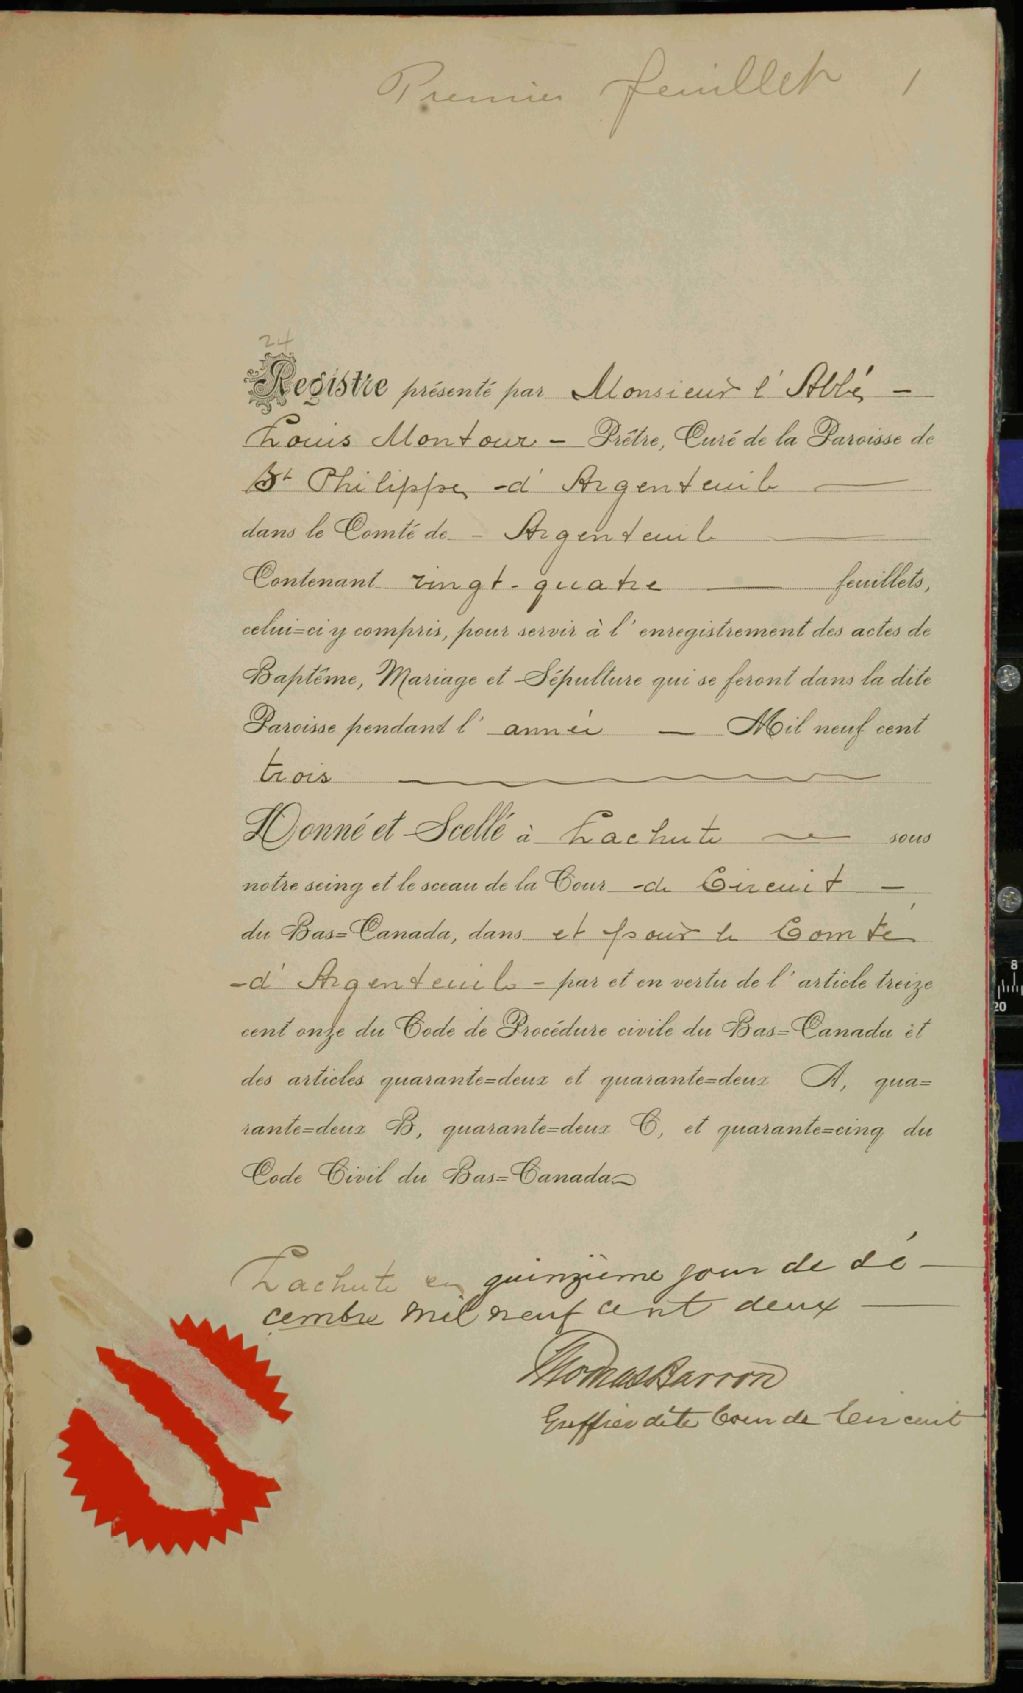 Premier feuillet 1
24
Registre présenté par Monsieur l'Abbé –
Louis Montour – Prêtre, Curé de la Paroisse de
St Philippe d'Argenteuil
dans le Comté de Argenteuil
Contenant vingt-quatre feuillets,
celui=ci y compris, pour servir à l'enregistrement des actes de
Baptême, Mariage et Sépulture qui se feront dans la dite
Paroisse pendant l'année – Mil neuf cent
trois
Donné et Scellé à Lachute sous
notre seing et le sceau de la Cour de Circuit –
du Bas=Canada, dans et pour le Comté
d'Argenteuil – par et en vertu de l'article treize
cent onze du Code de Procédure civile du Bas=Canada et
des articles quarante=deux et quarante=deux A, qua=
rante=deux B, quarante=deux C, et quarante=cinq du
Code Civil du Bas=Canada
Lachute ce quinzième jour de dé –
cembre mil neuf cent deux
Thomas Barron
Greffier dite Cour de Circuit
8
20